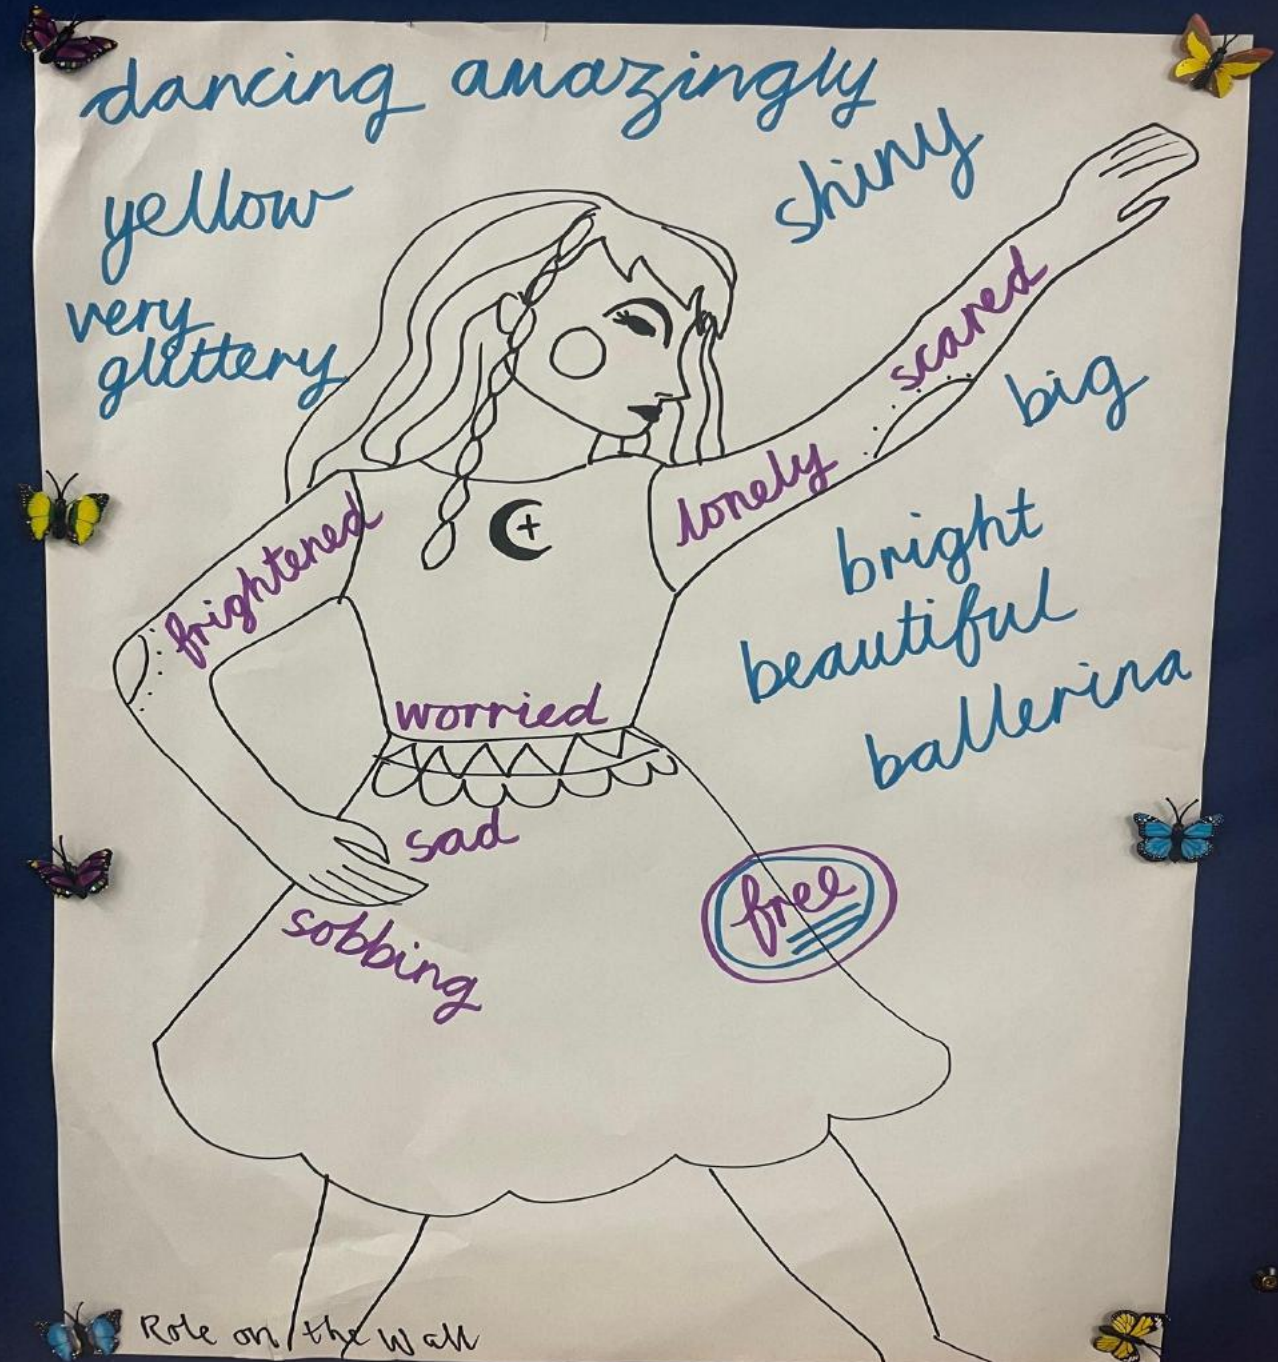 dancing amazingly
yellow
shiny
very
glittery
scared
big
lonely
frightened
bright
beautiful
worried
ballerina
sad
free
sobbing
Role on the Wall